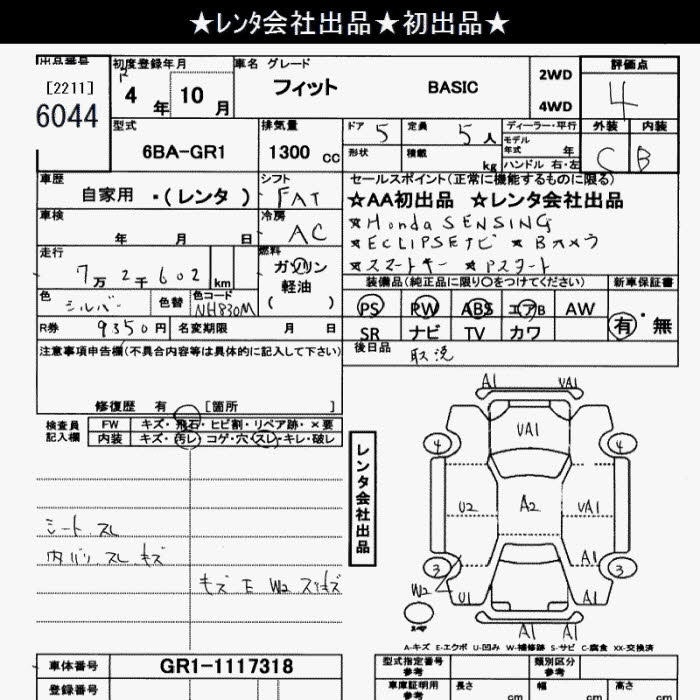 ★レンタ会社出品★初出品★
出品番号 初度登録年月 車名 グレード 評価点
[2211] R 4年 10月 フィット BASIC 2WD 4
6044 4WD
型式 排気量 ドア 5 定員 5人 ディーラー・平行 外装 内装
6BA-GR1 1300 cc 形状 積載 kg モデル年式 年 C B
ハンドル 右・左
車歴 シフト セールスポイント(正常に機能するものに限る)
自家用 ・(レンタ ) FAT ☆AA初出品 ☆レンタ会社出品
車検 冷房 ★Honda SENSING
年 月 日 AC ★ECLIPSEナビ ★Bカメラ
走行 燃料 ★スマートキー ★Pスタート
7万2千602 km ガソリン
軽油
( )
装備品(純正品に限り○をつけてください) 新車保証書
色 シルバー 色替 色コード NH830M
PS PW ABS エアB AW 有・無
R券 9350円 名変期限 月 日 SR ナビ TV カワ
注意事項申告欄(不具合内容等は具体的に記入して下さい) 後日品 取説
修復歴 有 [箇所 ]
検査員記入欄 FW キズ・飛石・ヒビ割・リペア跡・×要
内装 キズ・汚レ・コゲ・穴・スレ・キレ・破レ
レンタ会社出品
A1 VA1
VA1
4 4
U2 A2 VA1
シート スレ
内バリ スレ キズ
A1
3 3
キズ E W2
W2 U1 A1
A1 A1
A-キズ E-エクボ U-凹み W-補修跡 S-サビ C-腐食 XX-交換済
車体番号 GR1-1117318 型式指定番号 参考 類別区分 参考
登録番号 車庫証明用 参考 長さ cm 幅 cm 高さ cm